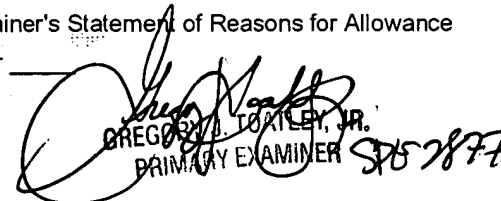 iner's Statement of Reasons for Allowance
GREGORY J. TOATLEY, JR.
PRIMARY EXAMINER SPE 2877